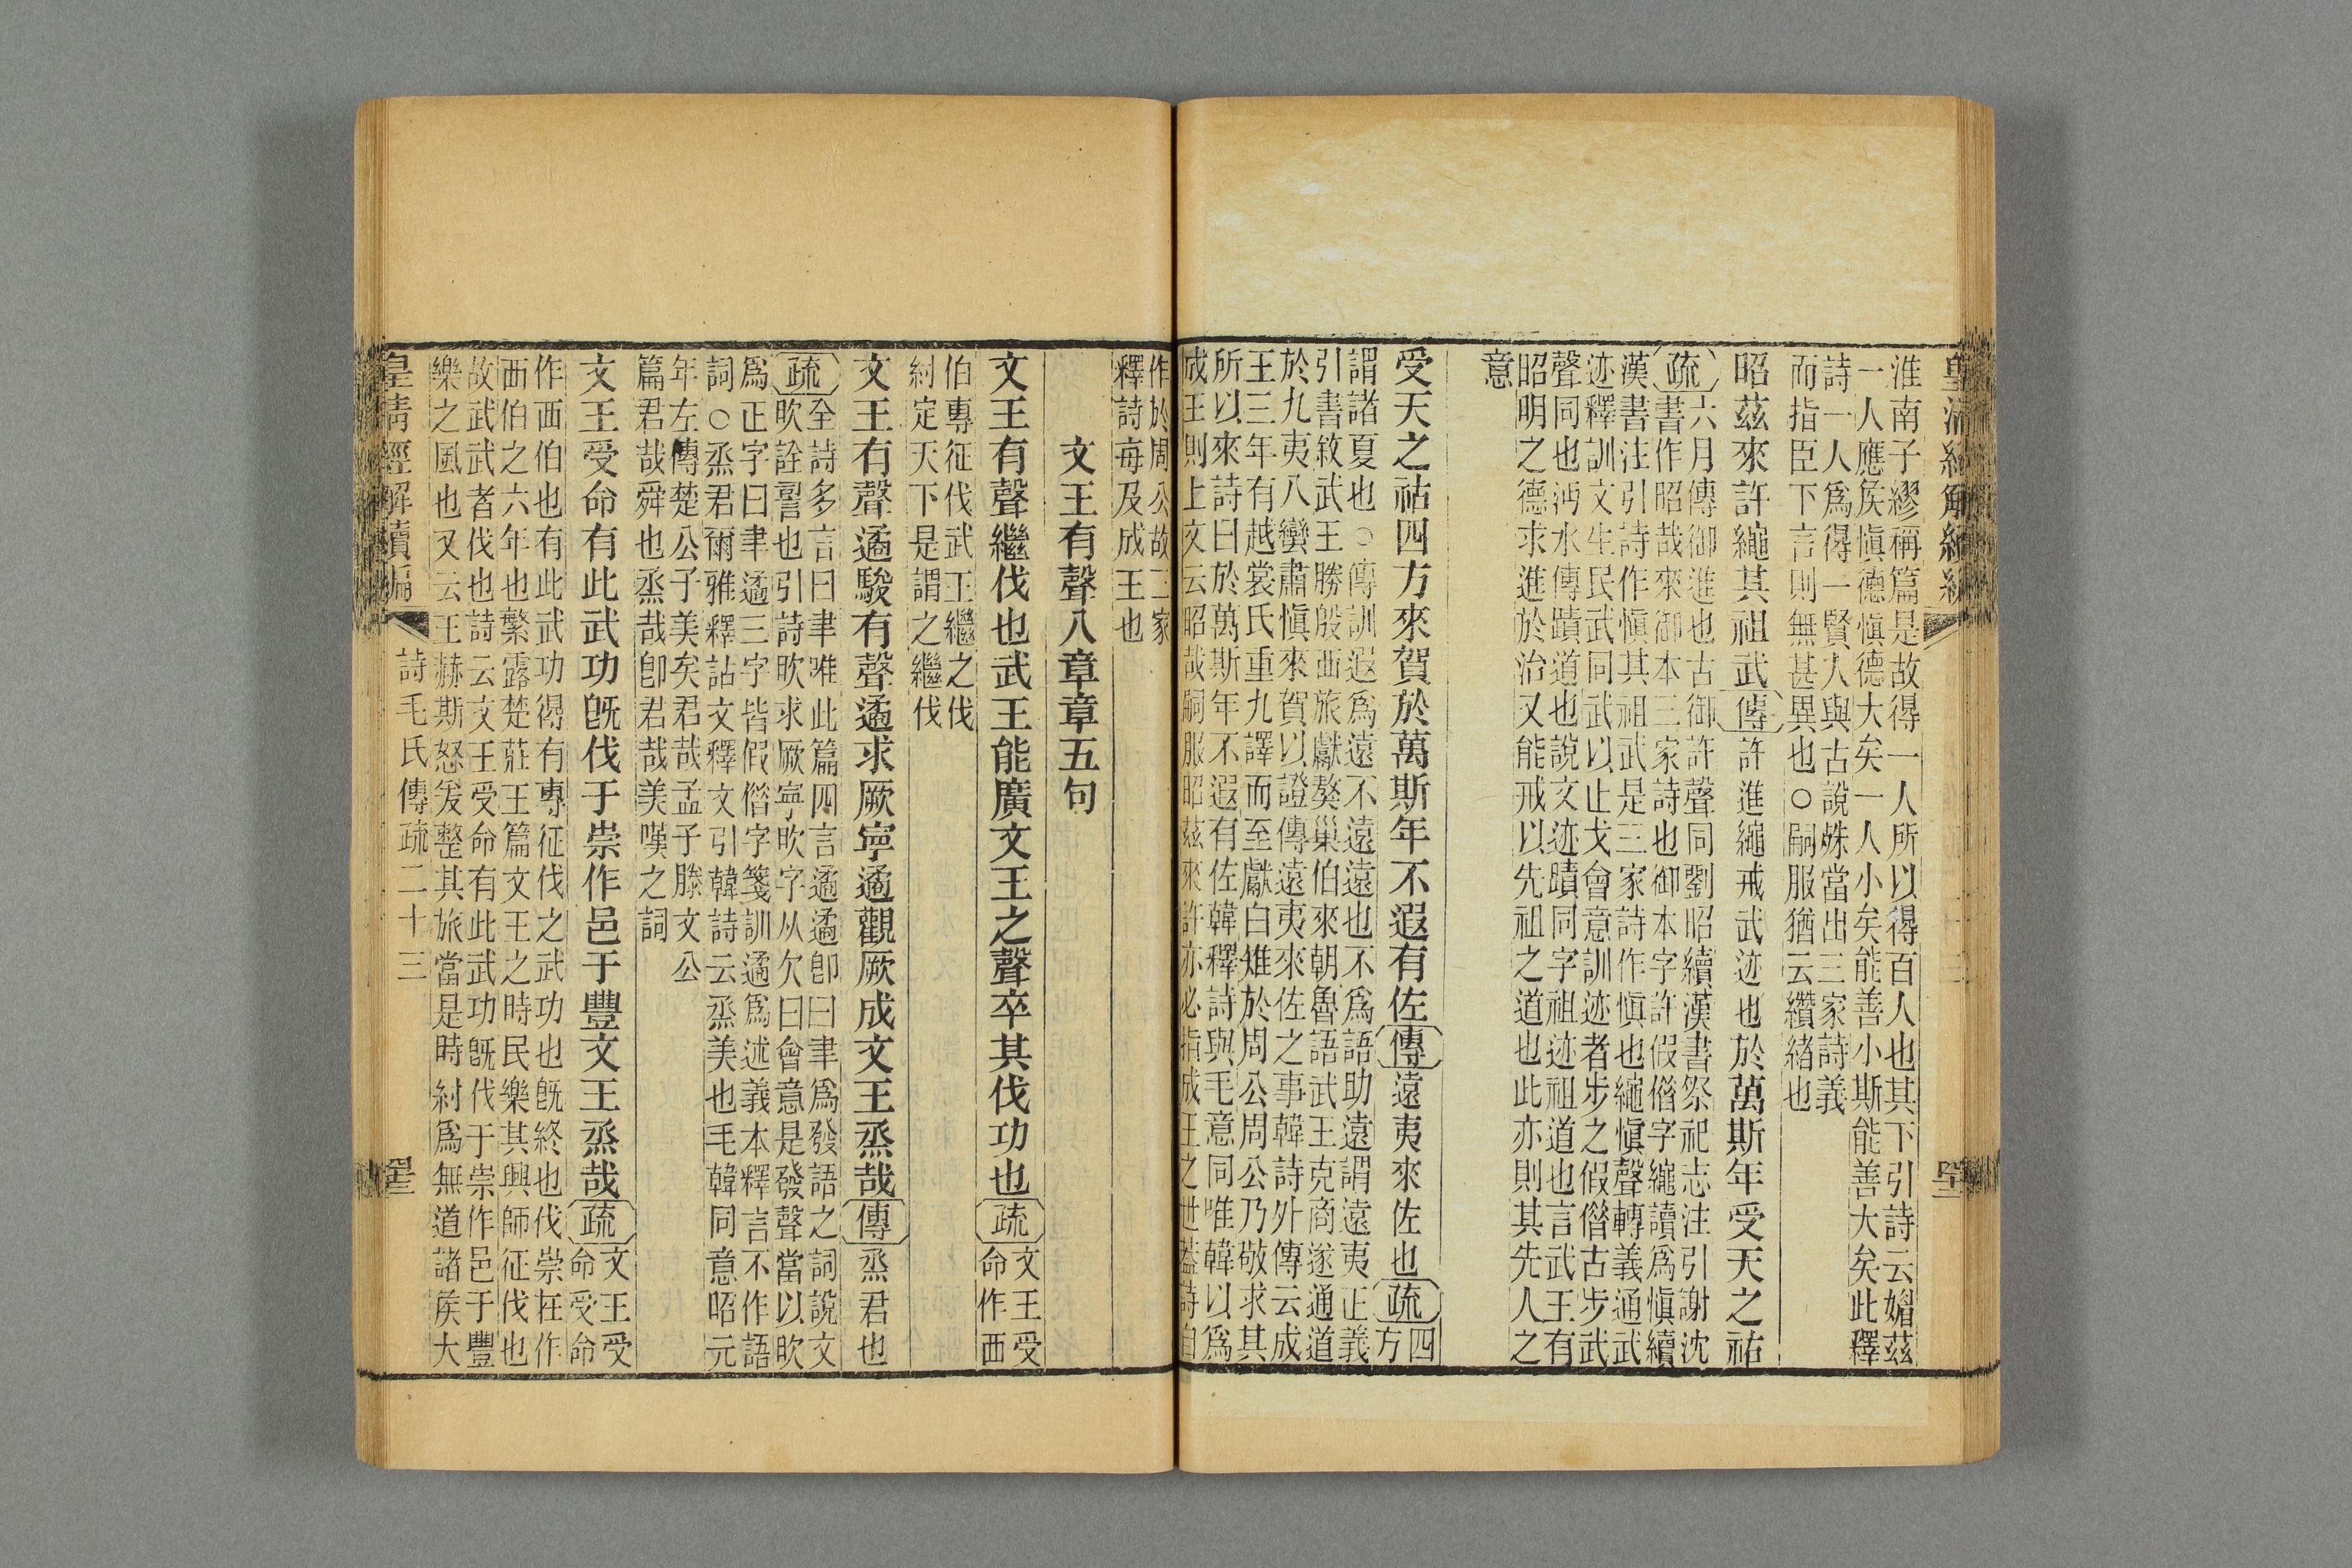 淮南子繆稱篇是故得一人所以得百人也其下引詩云媚茲
一人應矦慎德慎德大矣一人小矣能善小斯能善大矣此釋
詩一人爲得一賢人與古說姝當出三家詩義
而指臣下言則無甚異也○嗣服猶云纘緒也
昭茲來許繩其祖武傳許進繩戒武迹也於萬斯年受天之祜
疏六月傳御進也古御許聲同劉昭續漢書祭祀志注引謝沈
書作昭哉來御本三家詩也御本字許假借字繩讀爲慎續
漢書注引詩作慎其祖武是三家詩作慎也繩慎聲轉義通武
迹釋訓文生民武同武以止戈會意訓迹者步之假僭古步武
聲同也沔水傳蹟道也說文迹蹟同字祖迹祖道也言武王有
昭明之德求進於治又能戒以先祖之道也此亦則其先人之
意
受天之祜四方來賀於萬斯年不遐有佐傳遠夷來佐也疏四方
謂諸夏也○傳訓遐爲遠不遠遠也不爲語助遠謂遠夷正義
引書敘武王勝殷西旅獻獒巢伯來朝魯語武王克商遂通道
於九夷八蠻肅慎來賀以證傳遠夷來佐之事韓詩外傳云成
王三年有越裳氏重九譯而至獻白雉於周公周公乃敬求其
所以來詩曰於萬斯年不遐有佐韓釋詩與毛意同唯韓以爲
成王則上文云昭哉嗣服昭茲來許亦必指成王之世葢詩自
作於周公故三家
釋詩每及成王也
文王有聲八章章五句
文王有聲繼伐也武王能廣文王之聲卒其伐功也疏文王受命作西
伯專征伐武王繼之伐
紂定天下是謂之繼伐
文王有聲遹駿有聲遹求厥寧遹觀厥成文王烝哉傳烝君也
疏全詩多言曰聿唯此篇四言遹遹卽曰聿爲發語之詞說文
欥詮䛐也引詩欥求厥寧欥字从欠曰會意是發聲當以欥
爲正字曰聿遹三字皆假僭字箋訓遹爲述義本釋言不作語
詞○烝君爾雅釋詁文釋文引韓詩云烝美也毛韓同意昭元
年左傳楚公子美矣君哉孟子滕文公
篇君哉舜也烝哉卽君哉美嘆之詞
文王受命有此武功旣伐于崇作邑于豐文王烝哉疏文王受命受命
作西伯也有此武功得有專征伐之武功也旣終也伐崇在作
西伯之六年也繁露楚莊王篇文王之時民樂其興師征伐也
故武武者伐也詩云文王受命有此武功旣伐于崇作邑于豐
樂之風也又云王赫斯怒爰整其旅當是時紂爲無道諸矦大
皇清經解續編
詩毛氏傳疏二十三